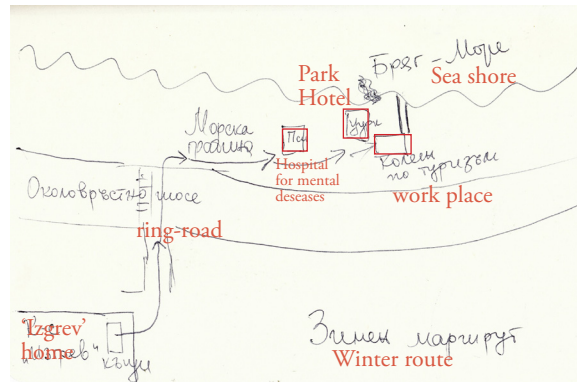 Бряг - Море
Sea shore
Park
Hotel
Морска
градина
Hospital
for mental
deseases
Колеж
по туризъм
work place
Околовръстно шосе
ring-road
'Izgrev'
home
къщи
Зимен маршрут
Winter route